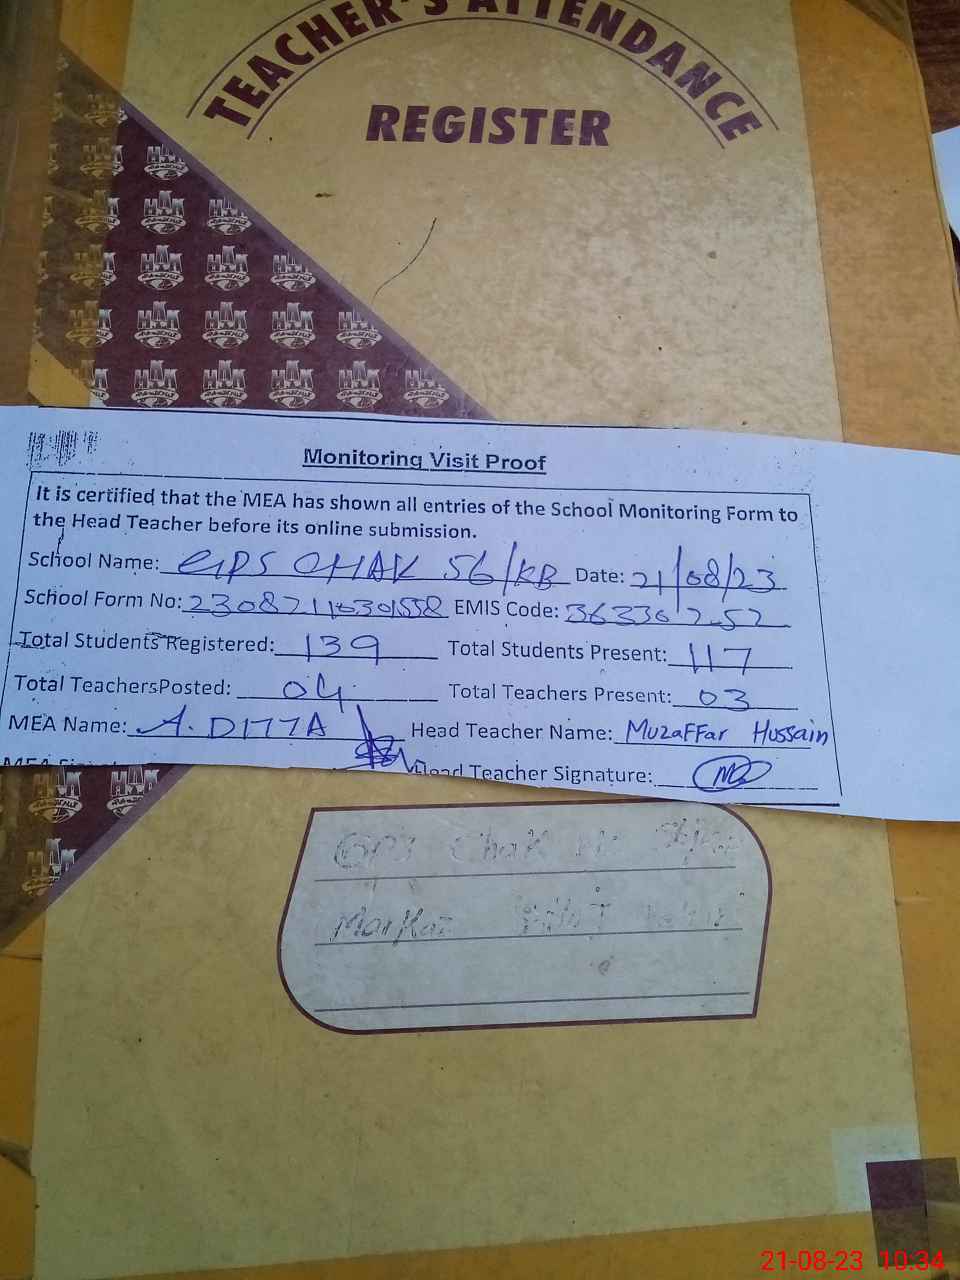 TEACHER'S ATTENDANCE
REGISTER
HAK
Monitoring Visit Proof
It is certified that the MEA has shown all entries of the School Monitoring Form to
the Head Teacher before its online submission.
School Name: GPS CHAK 56/KB Date: 21/08/23
School Form No: 23082110301558 EMIS Code: 36330252
Total Students Registered: 139 Total Students Present: 117
Total TeachersPosted: 04 Total Teachers Present: 03
MEA Name: A. DITTA Head Teacher Name: Muzaffar Hussain
Head Teacher Signature:
GPS Chak
Markaz
21-08-23 10:34